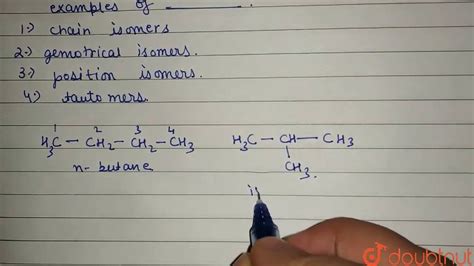 examples of ________.
1.) chain isomers
2.) gemotrical isomers.
3.) position isomers.
4.) tauto mers.
1 2 3 4
H3C - CH2 - CH2 - CH3 H3C - CH - CH3
n- butane CH3.
i
doubtnut